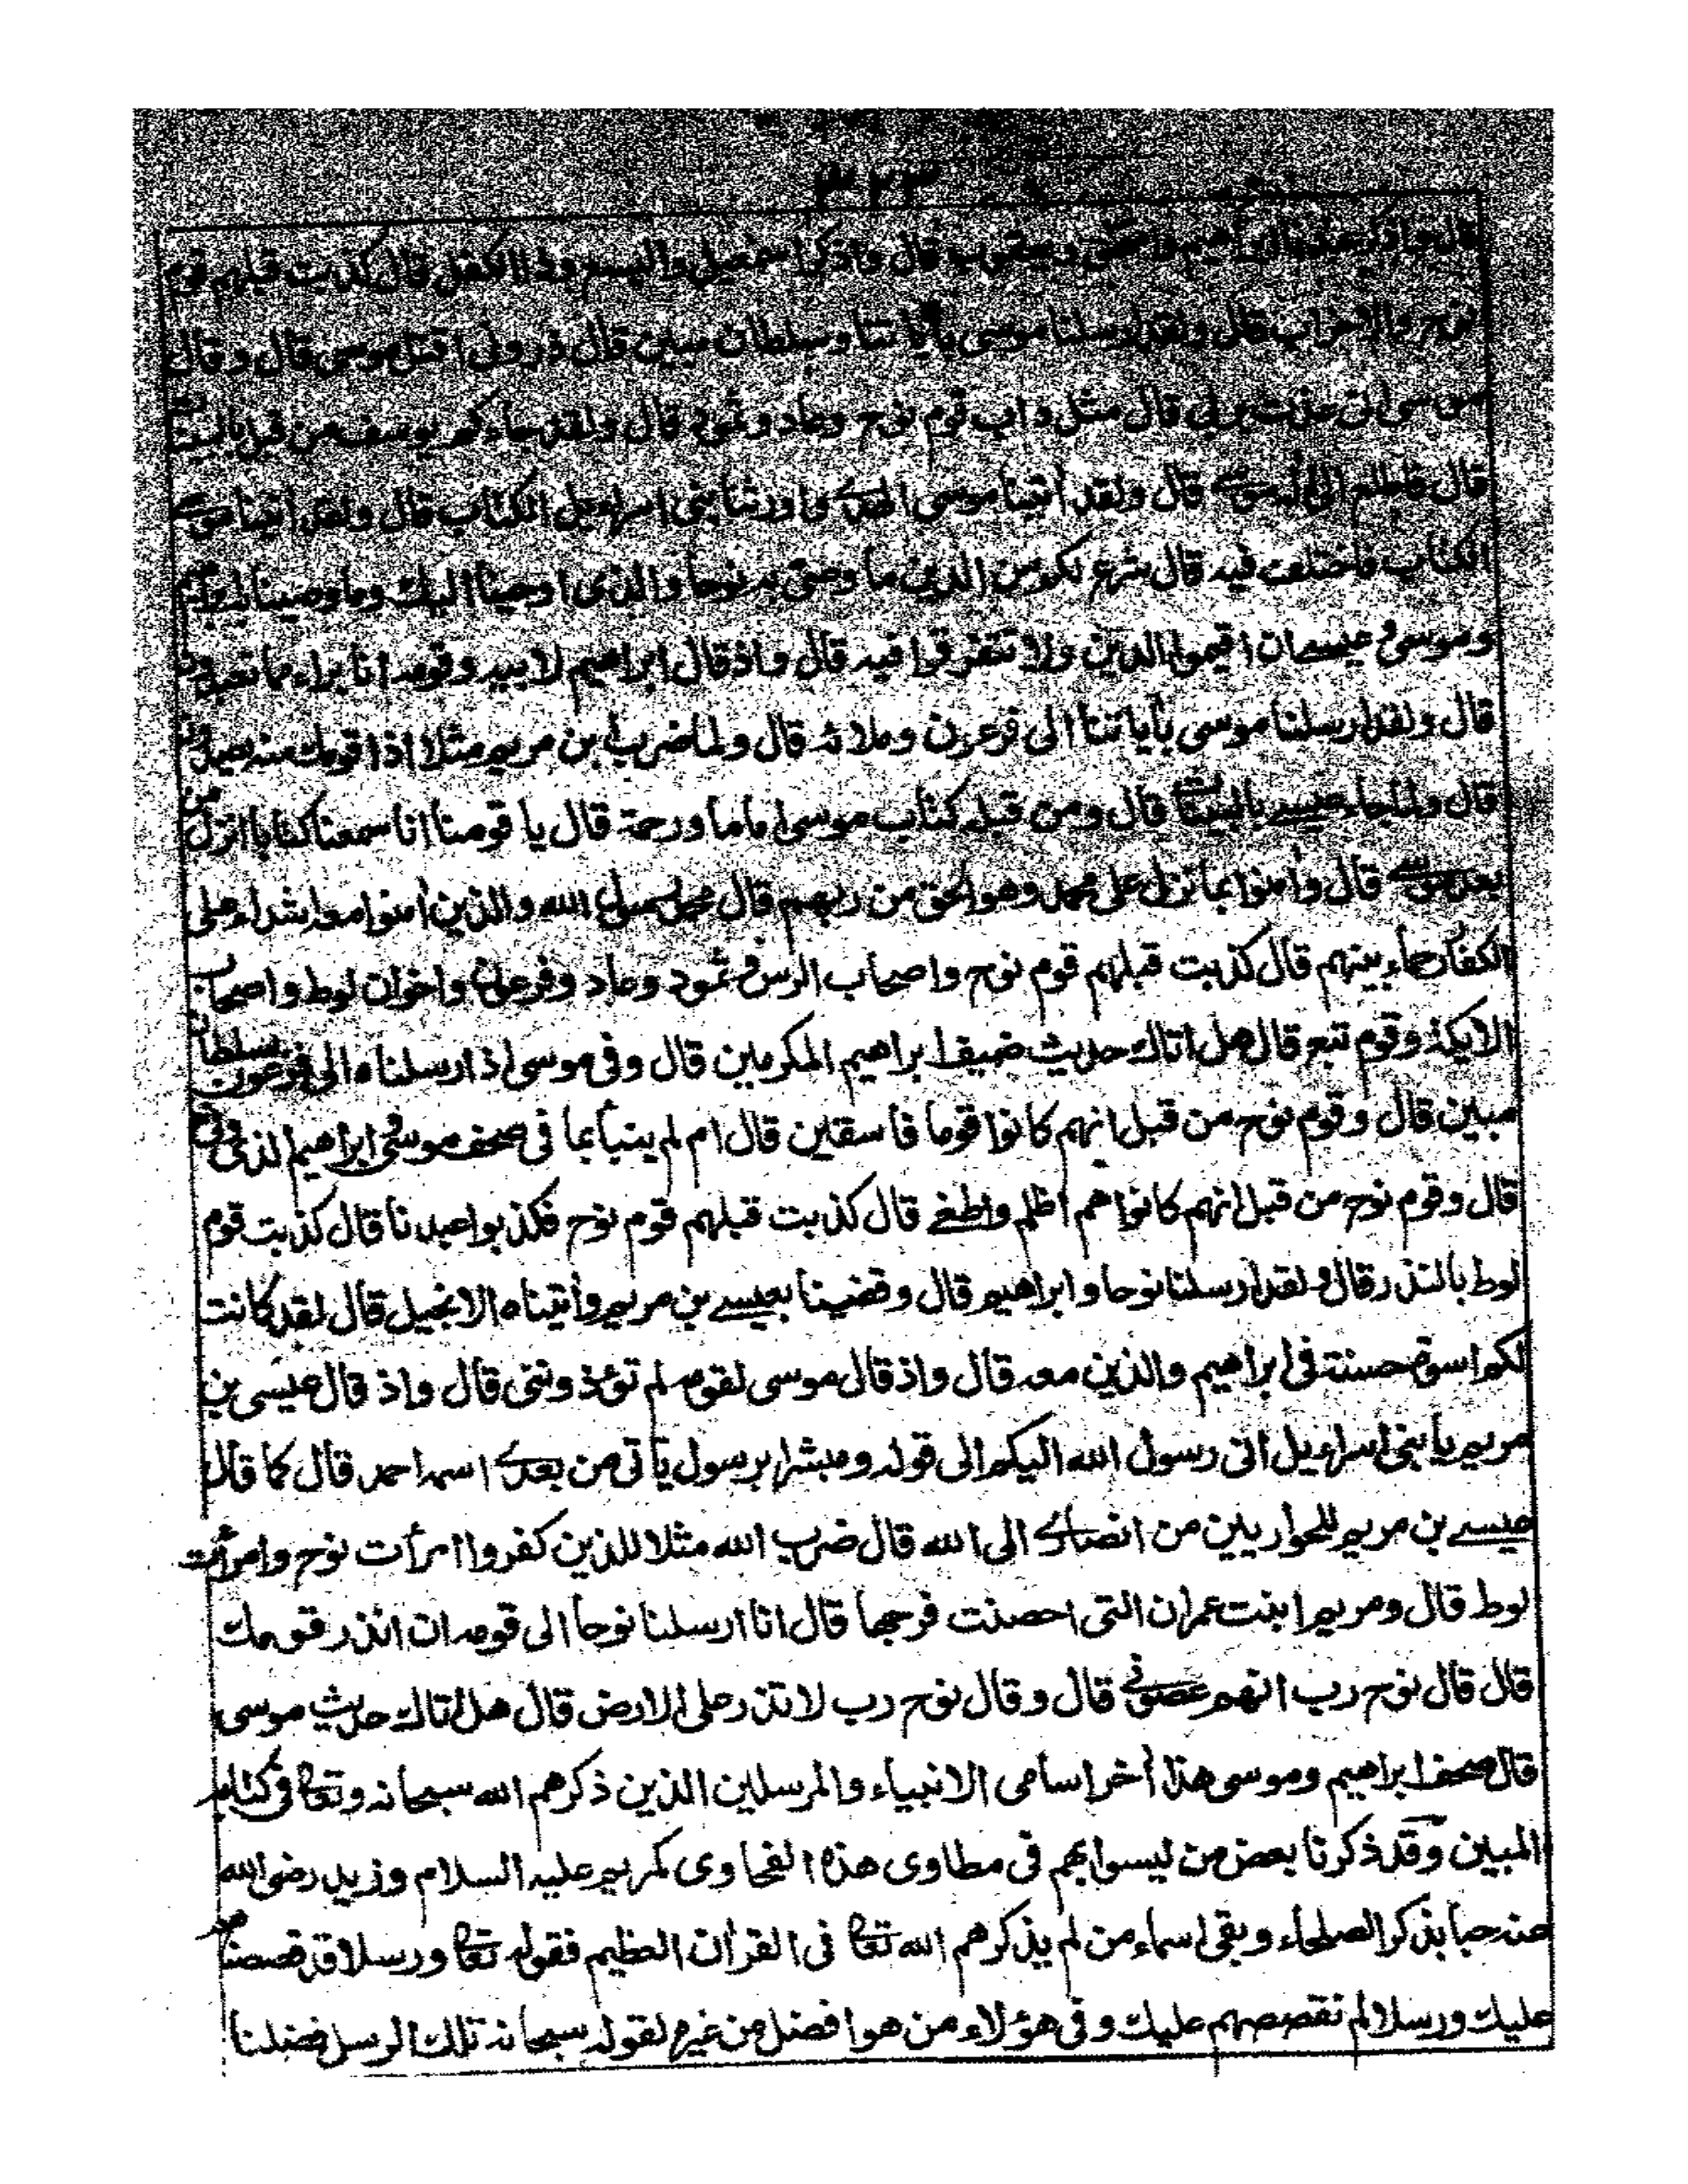 ٣٢٣
قال واذكر عبادنا ابراهيم واسحق ويعقوب قال واذكر اسمعيل واليسع وذا الكفل قال كذبت قبلهم قوم
نوح والاحزاب قال ولقد ارسلنا موسى بأياتنا وسلطان مبين قال ذرونى اقتل موسى قال وقال
موسى انى عذت بربى قال مثل داب قوم نوح وعاد وثمود قال ولقد جاءكم يوسف من قبل بالبينت
قال فاطلع الى اله موسى قال ولقد أتينا موسى الهدى واورثنا بنى اسراءيل الكتاب قال ولقد أتينا موسى
الكتاب فاختلف فيه قال شرع لكم من الدين ما وصى به نوحا والذى اوحينا اليك وما وصينا به ابراهيم
وموسى وعيسى ان اقيموا الدين ولا تتفرقوا فيه قال واذ قال ابراهيم لابيه وقومه انا براء مما تعبدون
قال ولقد ارسلنا موسى بأياتنا الى فرعون وملائه قال ولما ضرب ابن مريم مثلا اذا قومك منه يصدون
قال ولما جاء عيسى بالبينت قال ومن قبله كتاب موسى اماما ورحمة قال يا قومنا انا سمعنا كتابا انزل من
بعد موسى قال وأمنوا بما نزل على محمد وهو الحق من ربهم قال محمد رسول الله والذين أمنوا معه اشداء على
الكفار رحماء بينهم قال كذبت قبلهم قوم نوح واصحاب الرس وثمود وعاد وفرعون واخوان لوط واصحاب
الايكة وقوم تبع قال هل اتاك حديث ضيف ابراهيم المكرمين قال وفى موسى اذ ارسلناه الى فرعون بسلطان
مبين قال وقوم نوح من قبل انهم كانوا قوما فاسقين قال ام لم ينبأ بما فى صحف موسى وابراهيم الذى وفى
قال وقوم نوح من قبل انهم كانوا هم اظلم واطغى قال كذبت قبلهم قوم نوح فكذبوا عبدنا قال كذبت قوم
لوط بالنذر قال ولقد ارسلنا نوحا وابراهيم قال وقفينا بعيسى بن مريم وأتيناه الانجيل قال لقد كانت
لكم اسوة حسنة فى ابراهيم والذين معه قال واذ قال موسى لقومه لم تؤذوننى قال واذ قال عيسى بن
مريم يا بنى اسراءيل انى رسول الله اليكم الى قوله ومبشرا برسول يأتى من بعدى اسمه احمد قال كما قال
عيسى بن مريم للحواريين من انصارى الى الله قال ضرب الله مثلا للذين كفروا امرأت نوح وامرأت
لوط قال ومريم ابنت عمران التى احصنت فرجها قال انا ارسلنا نوحا الى قومه ان انذر قومك
قال قال نوح رب انهم عصونى قال وقال نوح رب لا تذر على الارض قال هل اتاك حديث موسى
قال صحف ابراهيم وموسى هذا أخر اسامى الانبياء والمرسلين الذين ذكرهم الله سبحانه وتعالى فى كتابه
المبين وقد ذكرنا بعض من ليسوا بهم فى مطاوى هذه الفحاوى كمريم عليه السلام وزيد رضى الله
عنه حبا بذكر الصلحاء وبقى اسماء من لم يذكرهم الله تعالى فى القرأن العظيم فقوله تعالى ورسلا قد قصصنهم
عليك ورسلا لم نقصصهم عليك وفى هؤلاء من هو افضل من غيره لقوله سبحانه تلك الرسل فضلنا